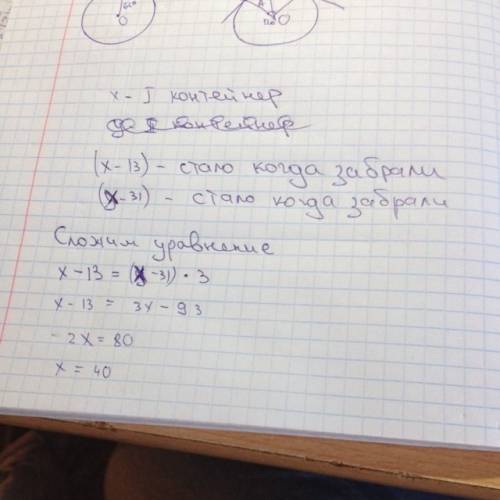 60°
O
A
120
O
x - I контейнер
(x - 13) - стало когда забрали
(x - 31) - стало когда забрали
Сложим уравнение
x - 13 = (x - 31) · 3
x - 13 = 3x - 93
- 2x = 80
x = 40